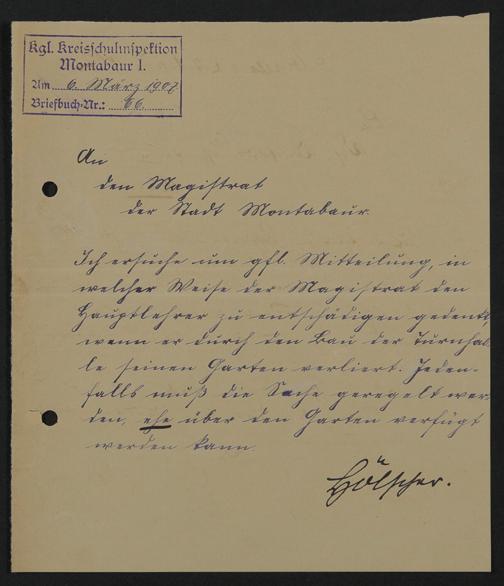 Kgl. Kreisschulinspektion
Montabaur I.
Am 6. März 1907
Briefbuch-Nr.: 66.
An
den Magistrat
der Stadt Montabaur.
Ich ersuche um gfl. Mitteilung, in
welcher Weise der Magistrat den
Hauptlehrer zu entschädigen gedenkt,
wenn er durch den Bau der Turnhal-
le seinen Garten verliert. Jeden-
falls muß die Sache geregelt wer-
den, ehe über den Garten verfügt
werden kann.
Hölscher.